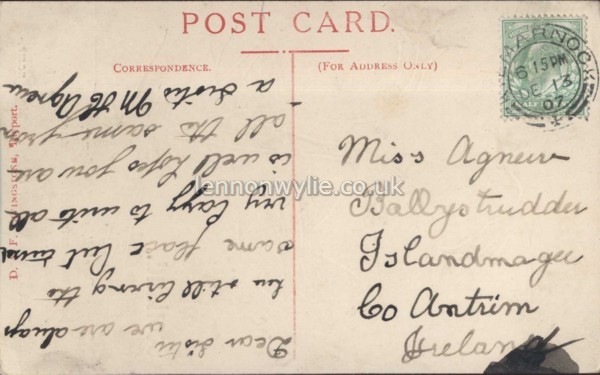 POST CARD.
CORRESPONDENCE.
(FOR ADDRESS ONLY)
MARNOCK
6 15 PM
DE 13
07
Miss Agnew
Ballystrudder
Islandmagee
Co Antrim
Ireland
Dear Sister
we are always
still living the
same place but
very lazy to write all
is well hope you are
all the same from
a Sister M H Agnew
lennonwylie.co.uk